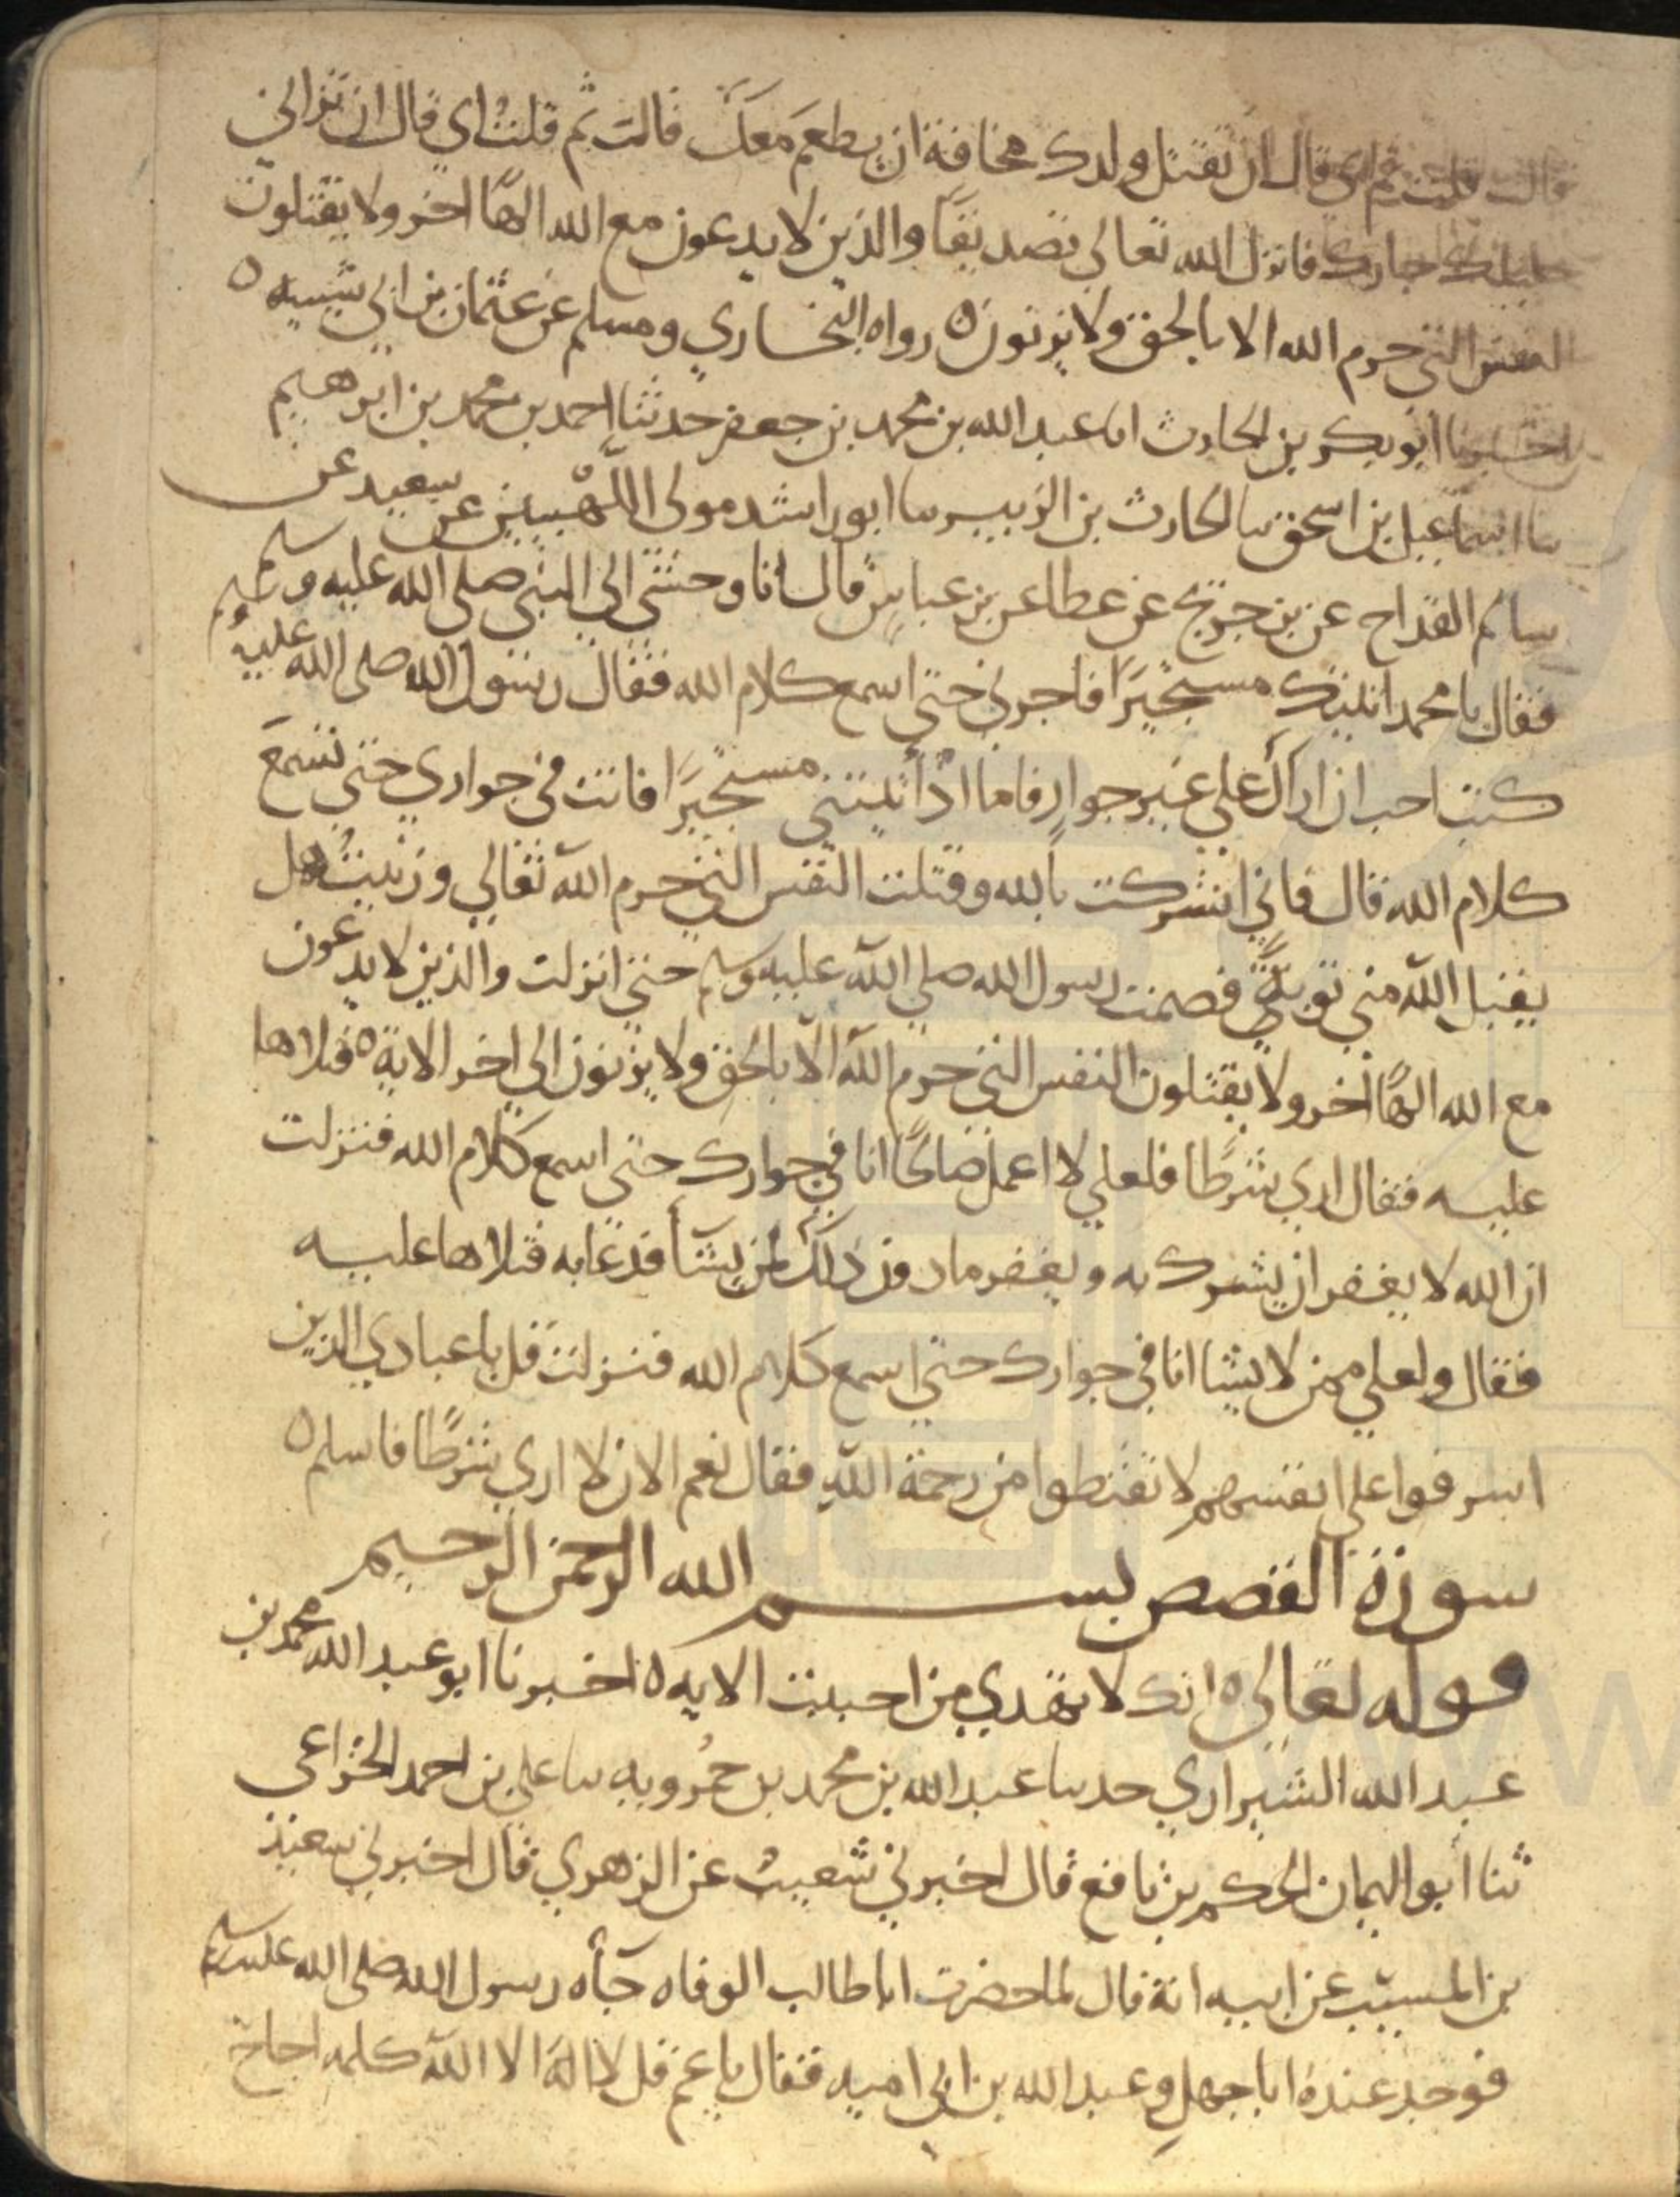 قالت قلت ثم اي قال ان تقتل ولدك مخافة ان يطعم معك قالت ثم قلت اي قال ان تزاني
حليلة جارك فانزل الله تعالي تصديقا والذين لا يدعون مع الله الهًا اخر ولا يقتلون
النفس التي حرم الله الا بالحق ولا يزنون ٥ رواه البخاري ومسلم عن عثمان بن ابي شيبه ٥
اخبرنا ابو بكر بن الحارث انا عبد الله بن محمد بن جعفر حدثنا احمد بن محمد بن ابرهيم
نا اسماعيل بن اسحق نا الحارث بن الزبير نا ابو راشد مولى اللهبيين عن سعيد عن
سالم القداح عن بن جريج عن عطا عن بن عباس قال اتا وحشي الي النبي صلي الله عليه وسلم
فقال يا محمد اتيتك مستجيرًا فاجرني حتي اسمع كلام الله فقال رسول الله صلي الله عليه وسلم
كنت احب ان اراك علي غير جوار فاما اذ أتيتني مستجيرًا فانت في جواري حتي تسمع
كلام الله قال فاني اشركت بالله وقتلت النفس التي حرم الله تعالي وزنيت هل
يقبل الله مني توبة فصمت رسول الله صلي الله عليه وسلم حتي انزلت والذين لا يدعون
مع الله الهًا اخر ولا يقتلون النفس التي حرم الله الا بالحق ولا يزنون الي اخر الاية ٥ فتلاها
عليه فقال اري شرطًا فلعلي لا اعمل صالحًا انا في جوارك حتي اسمع كلام الله فنزلت
ان الله لا يغفر ان يشرك به ويغفر ما دون ذلك لمن يشآ فدعا به فتلاها عليه
فقال ولعلي ممن لا يشا انا في جوارك حتي اسمع كلام الله فنزلت قل يا عبادي الذين
اسرفوا علي انفسهم لا تقنطوا من رحمة الله فقال نعم الان لا اري شرطًا فاسلم ٥
سورة القصص بسم الله الرحمن الرحيم
قوله تعالي ٥ انك لا تهدي من احببت الايه ٥ اخبرنا ابو عبد الله محمد بن
عبد الله الشيرازي حدثنا عبد الله بن محمد بن حمرويه نا علي بن احمد الخزاعي
ثنا ابو اليمان الحكم بن نافع قال اخبرني شعيب عن الزهري قال اخبرني سعيد
بن المسيب عن ابيه انه قال لما حضرت ابا طالب الوفاه جآه رسول الله صلي الله عليه وسلم
فوجد عنده ابا جهل وعبد الله بن ابي اميه فقال يا عم قل لا اله الا الله كلمه احاج